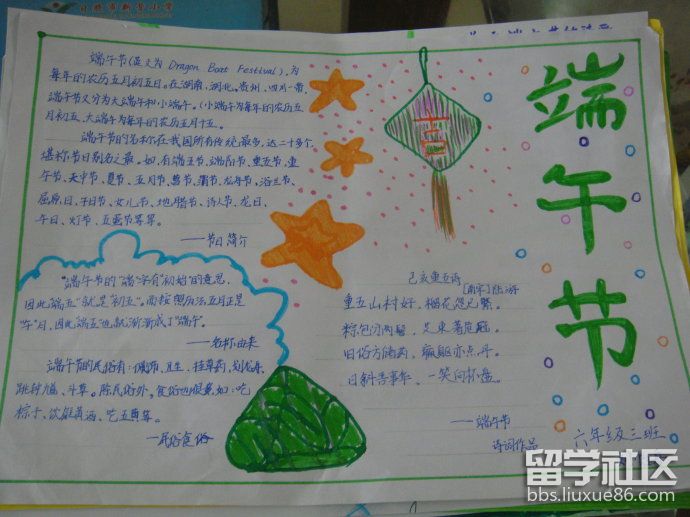 端午节(英文为 Dragon Boat Festival),为
每年的农历五月初五日。在湖南、湖北、贵州、四川一带,
端午节又分为大端午和小端午。(小端午为每年的农历五
月初五、大端午为每年的农历五月十五。
端午节的名称在我国所有传统最多,达二十多个,
堪称节日别名之最。如,有端五节、端阳节、重五节、重
午节、天中节、夏节、五月节、菖节、蒲节、龙舟节、浴兰节、
屈原日、午日节、女儿节、地腊节、诗人节、龙日、
午日、灯节、五蛋节等等。
——节日简介
"端午节的"端"字有"初始"的意思,
因此"端五"就是"初五"。而按照历法五月正是
"午"月,因此"端五"也就渐渐成了"端午"。
——名称由来
端午节的民俗有:佩饰、卫生、挂草药、划龙舟、
跳钟馗、斗草。除民俗外,食俗也很重要如:吃
粽子、饮雄黄酒、吃五毒等。
—民俗食俗
己亥重五诗
[南宋]陆游
重五山村好,榴花忽已繁。
粽包分两髻,艾束著危冠。
旧俗方储药,羸躯亦点丹。
日斜吾事毕,一笑向杯盘。
——端午节
诗词作品
端午节
六年级三班
留学社区
bbs.liuxue86.com